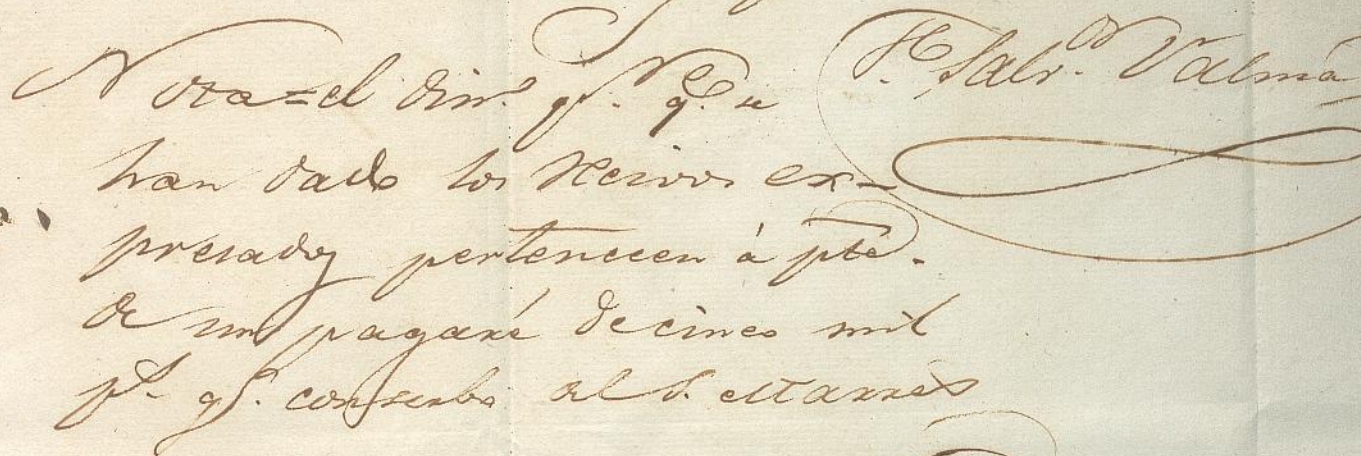 Nota = el din.º q.e se
han dado los Recivos ex-
presados pertenecen á pte.
de un pagaré de cinco mil
p.s q.e conserbo al S.
Salv.or